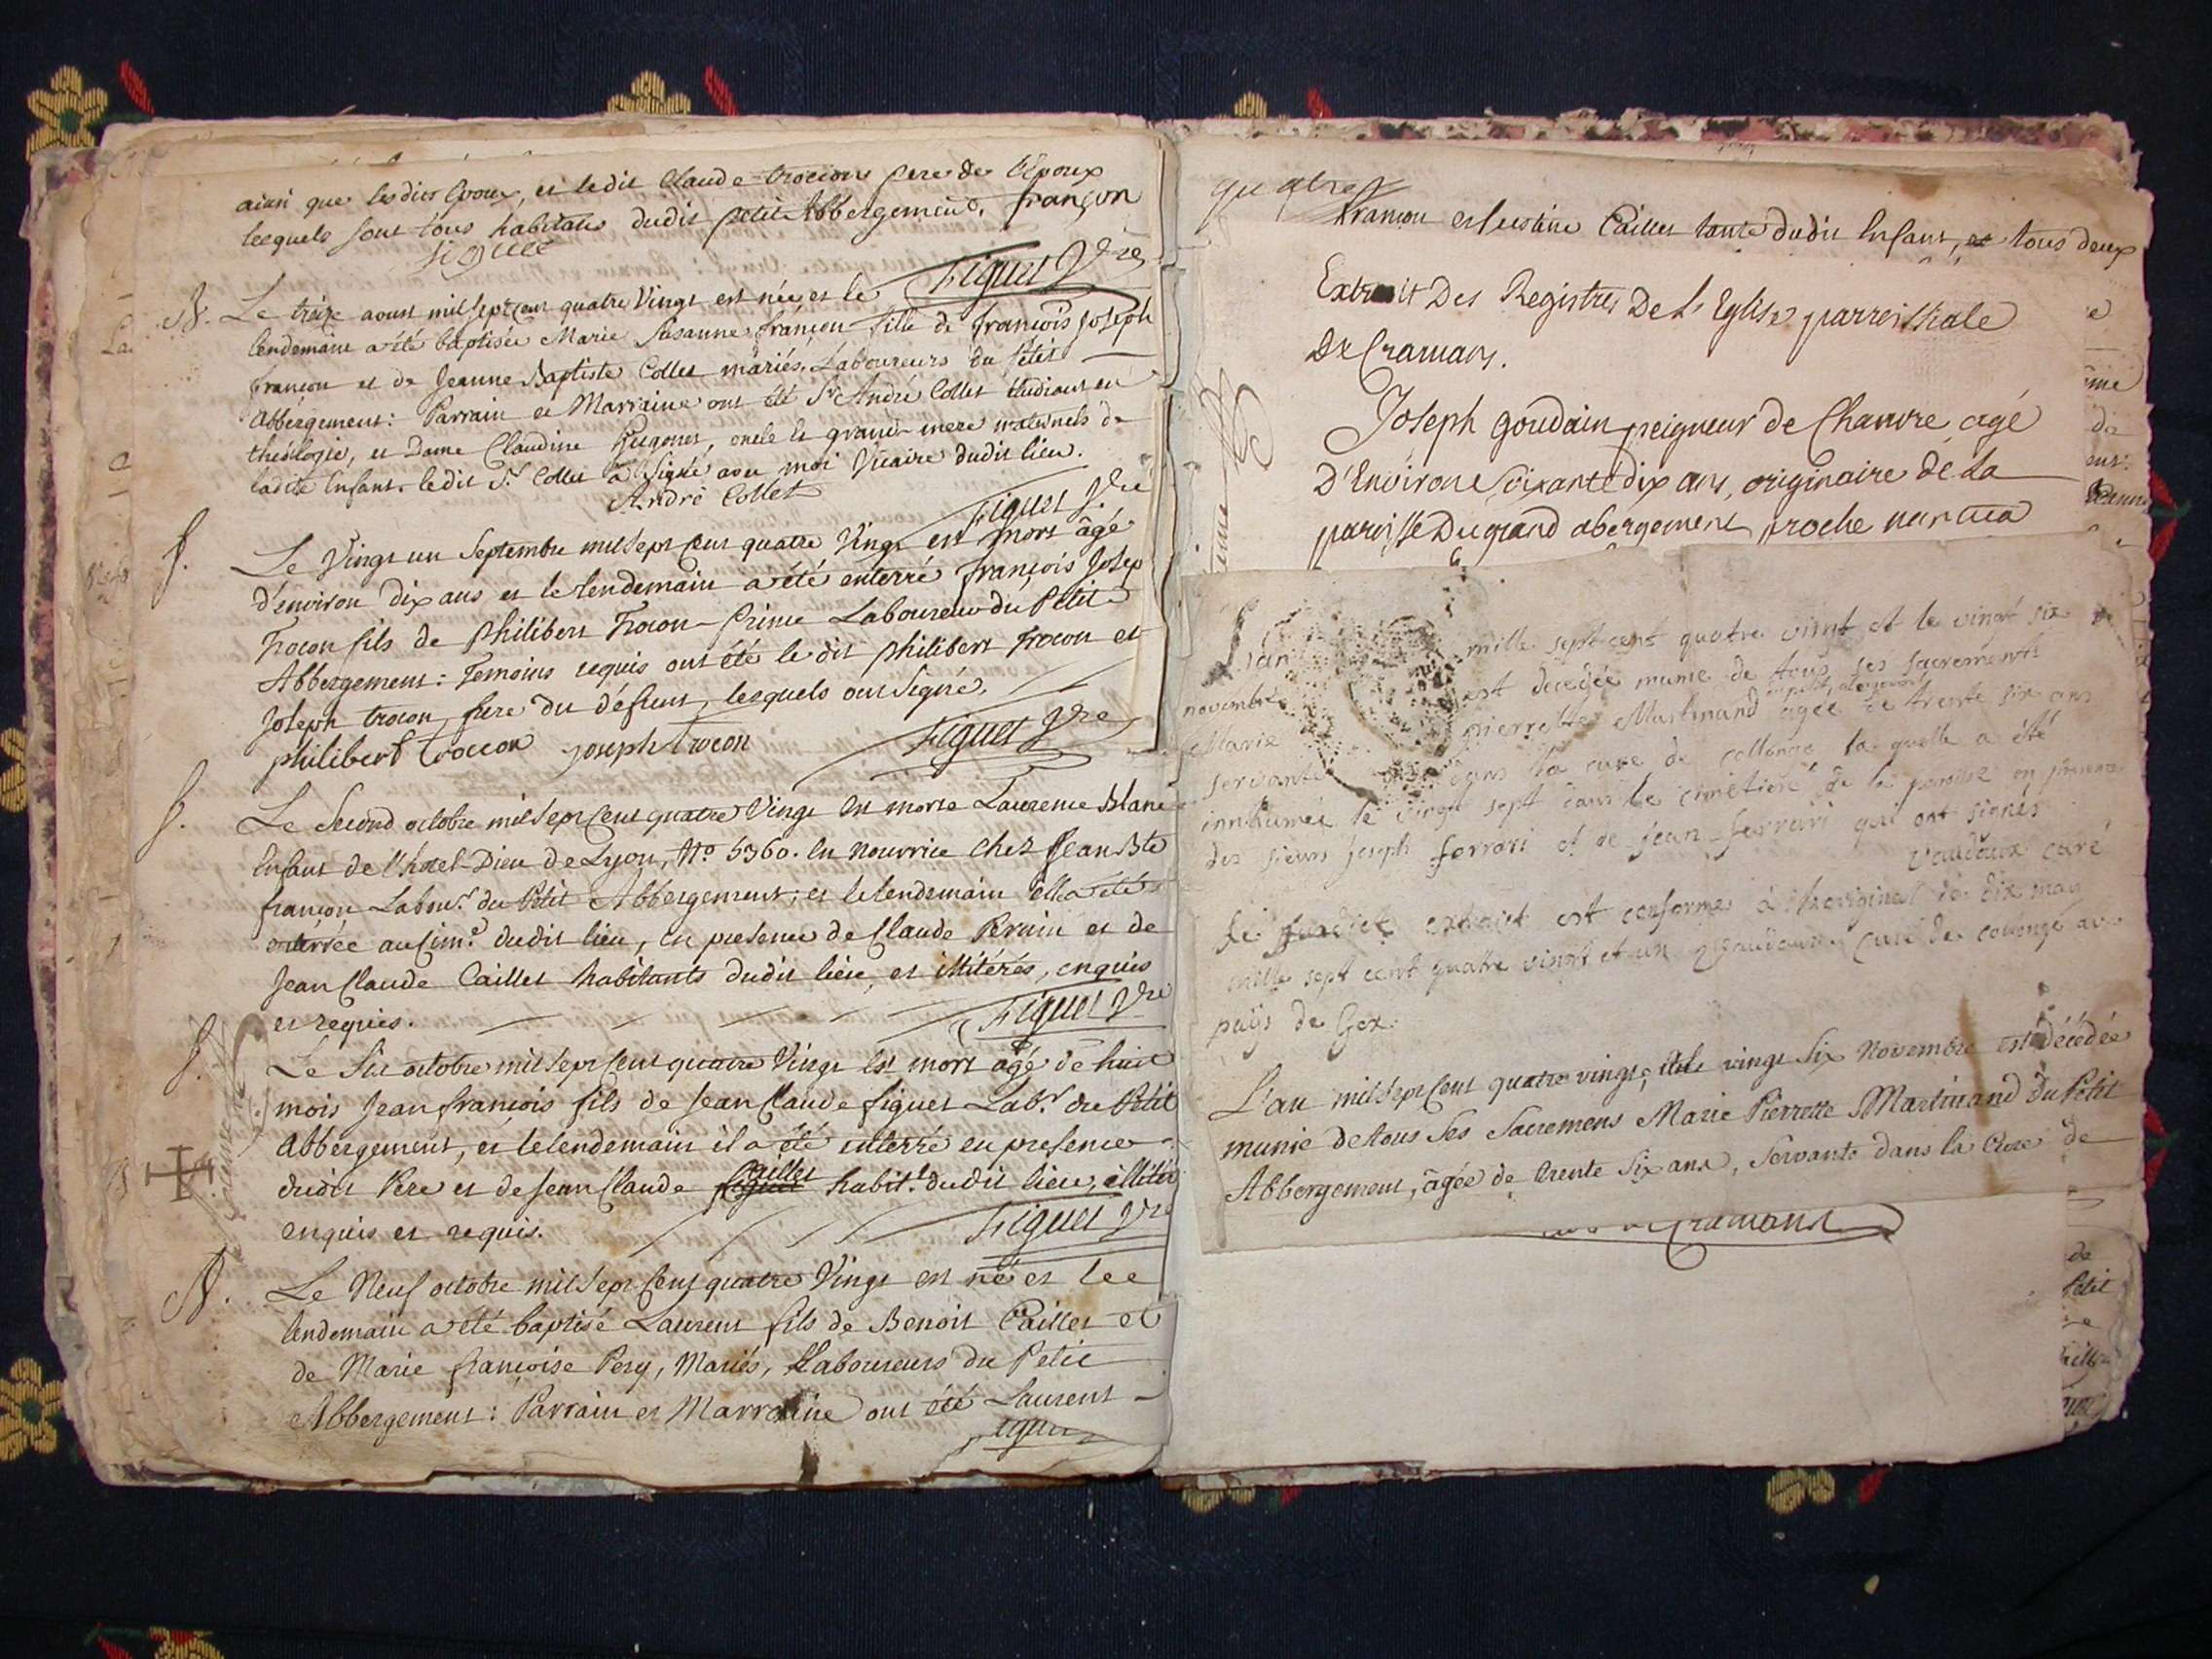 ainsi que lesdits Epoux, et ledit Claude trocon pere de l'Epoux
lesquels sont tous habitants dudit petit Abbergement. françon
Figuet Vre
B. Le treize aoust mil sept cent quatre Vingt est née, et le
lendemain a été baptisée Marie Susanne françon fille de françois Joseph
françon et de Jeanne Baptiste Collet mariés, Laboureurs du Petit
Abbergement: Parrain et Marraine ont été Sr André Collet étudiant en
théologie, et Dame Claudine, oncle et grand-mere maternels de
ladite Enfant. ledit Sr Collet a signé avec moi Vicaire dudit lieu.
André Collet
Figuet Vre
S. Le Vingt un Septembre mil sept cent quatre Vingt est mort âgé
d'environ dix ans et le lendemain a été enterré françois Josep
Trocon fils de Philibert Trocon-Prince Laboureur du Petit
Abbergement: Temoins requis ont été le dit philibert Trocon et
Joseph trocon, frere du défunt, lesquels ont Signé.
philibert trocon joseph trocon
Figuet Vre
S. Le Second octobre mil sept cent quatre Vingt est morte Laurence Blanc
Enfant de l'hotel-Dieu de Lyon, No 5360. en nourrice chez Jean Bte
françon Labour. du Petit Abbergement; et le lendemain ella été
enterrée au cim.e dudit lieu, en presence de Claude Perrin et de
Jean Claude Caillet habitants dudit lieu, et illitérés, enquis
et requis.
Figuet Vre
S. Le Six octobre mil sept cent quatre Vingt est mort âgé de huit
mois Jean françois fils de Jean Claude figuet Lab.r du Petit
Abbergement, et le lendemain il a été enterré en presence
dudit Pere et de Jean Claude Caillet habit.t dudit lieu, illitér
enquis et requis.
Figuet Vre
B. Le Neuf octobre mil sept cent quatre Vingt est né et le
lendemain a été baptisé Laurent fils de Benoit Caillet et
de Marie françoise Pery, Mariés, Laboureurs du Petit
Abbergement: Parrain et Marraine ont été Laurent
quatre
françon et Justine Caillet tante dudit Enfant, et tous deux
Extrait Des Registres De L'Eglise parroissiale
De Cramans.
Joseph goudain peigneur de Chanvre, agé
D'Environ Soixante dix ans, originaire de la
paroisse Du grand abergement proche nantua
L'an mille sept cent quatre vint et le vingt six
novembre est decedée munie de tous ses sacrements
du petit abergement
Marie pierrette Martinand agée de trente six ans
servante dans la cure de collonge la quelle a été
innhumée le vingt sept dans le cimetiere de la paroisse en presence
des sieurs joseph ferrari et de jean ferrari qui ont signés
Vaudaux curé
le susdict extrait est conforme à l'horiginal ce dix may
mille sept cent quatre vingt et un Vaudaux curé de colonge au
pays de Gex.
L'an mil sept cent quatre vingt, et le vingt six Novembre est décédée
munie de tous ses Sacremens Marie Pierrette Martinand du Petit
Abbergement, âgée de trente Six ans, Servante dans la Cure de
Cramans